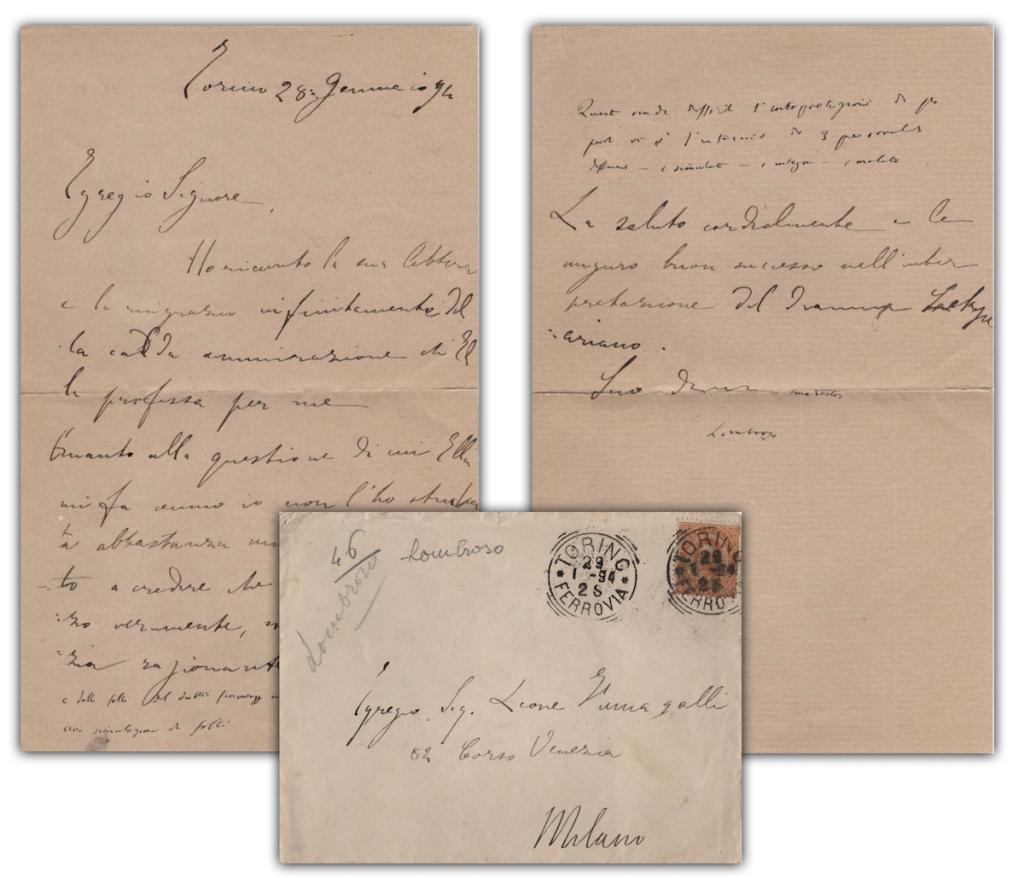 Torino 28 Gennaio 94
Egregio Signore,
Ho ricevuto la sua lettera
e la ringrazio infinitamente del
la calda ammirazione ch'El
la professa per me
Quanto alla questione di cui Ella
mi fa cenno io non l'ho studia
ta abbastanza
to a credere che
zo veramente,
zia ragionante
e dalla folla
con simulazioni di folli
Questo rende difficile l'interpretazioni
vi è l'intreccio di 3 personalità
La saluto cordialmente e Le
auguro buon successo nell'inter
pretazione del dramma Saekspe
ariano.
Suo
Lombroso
46
Lombroso
Lombroso
TORINO
29
1 - 94
2 S
FERROVIA
TORINO
29
1 - 94
2 S
FERROVIA
Egregio Sig. Leone Fumagalli
82 Corso Venezia
Milano